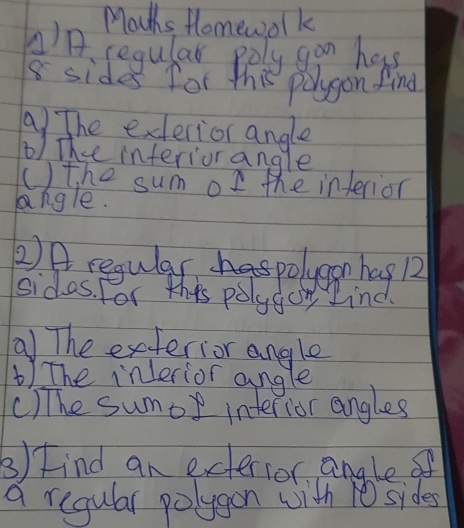 Maths Homework
1) A regular polygon has
8 sides for this polygon find
a) The exterior angle
b) The interior angle
c) The sum of the interior
angle.
2) A regular has polygon has 12
sides. For this polygon, find.
a) The exterior angle
b) The interior angle
c) The sum of interior angles
3) Find an exterior angle of
a regular polygon with 10 sides